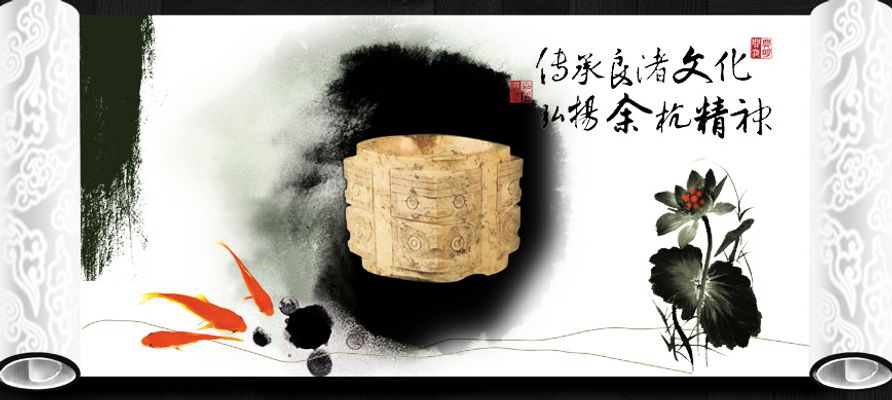 传承良渚文化
弘揚余杭精神